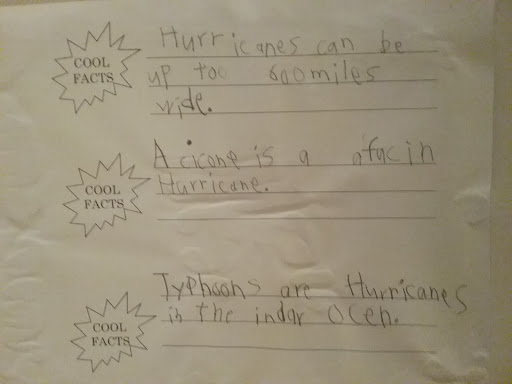 Hurricanes can be
COOL
FACTS
up too 600miles
wide.
A cicone is a afucin
COOL
FACTS
Hurricane.
Typhoons are Hurricanes
in the indar Ocen.
COOL
FACTS